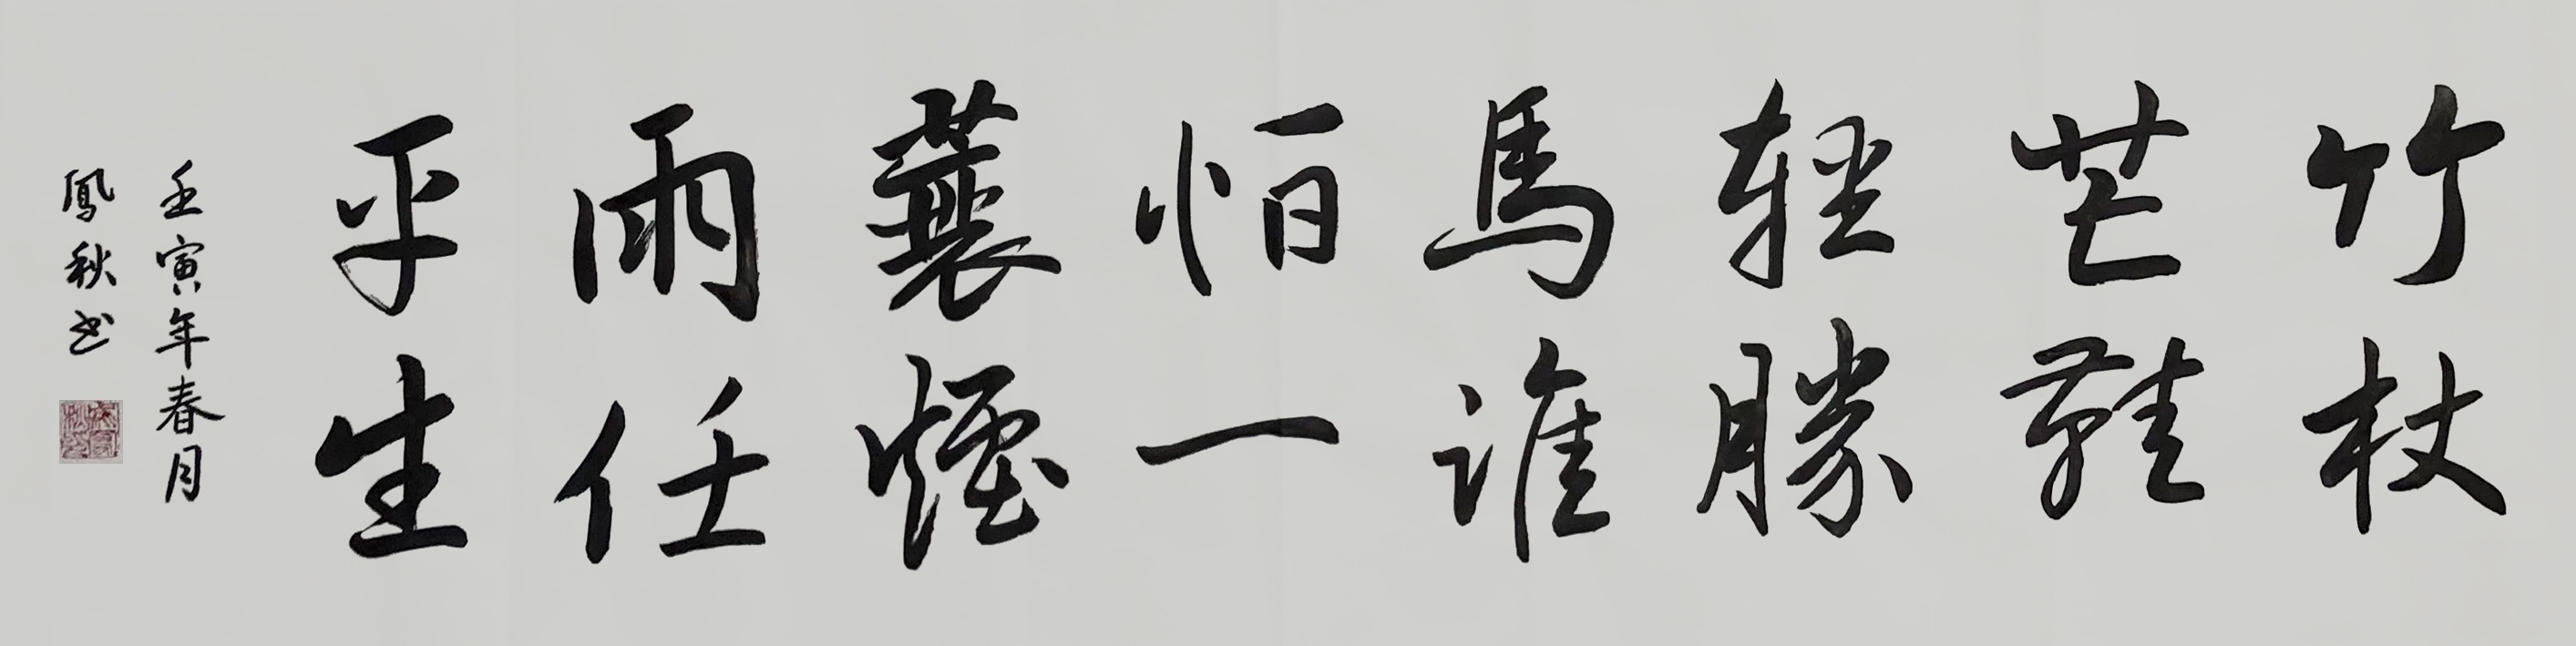 竹杖
芒鞋
轻勝
馬誰
怕一
蓑煙
雨任
平生
壬寅年春月
鳳秋书